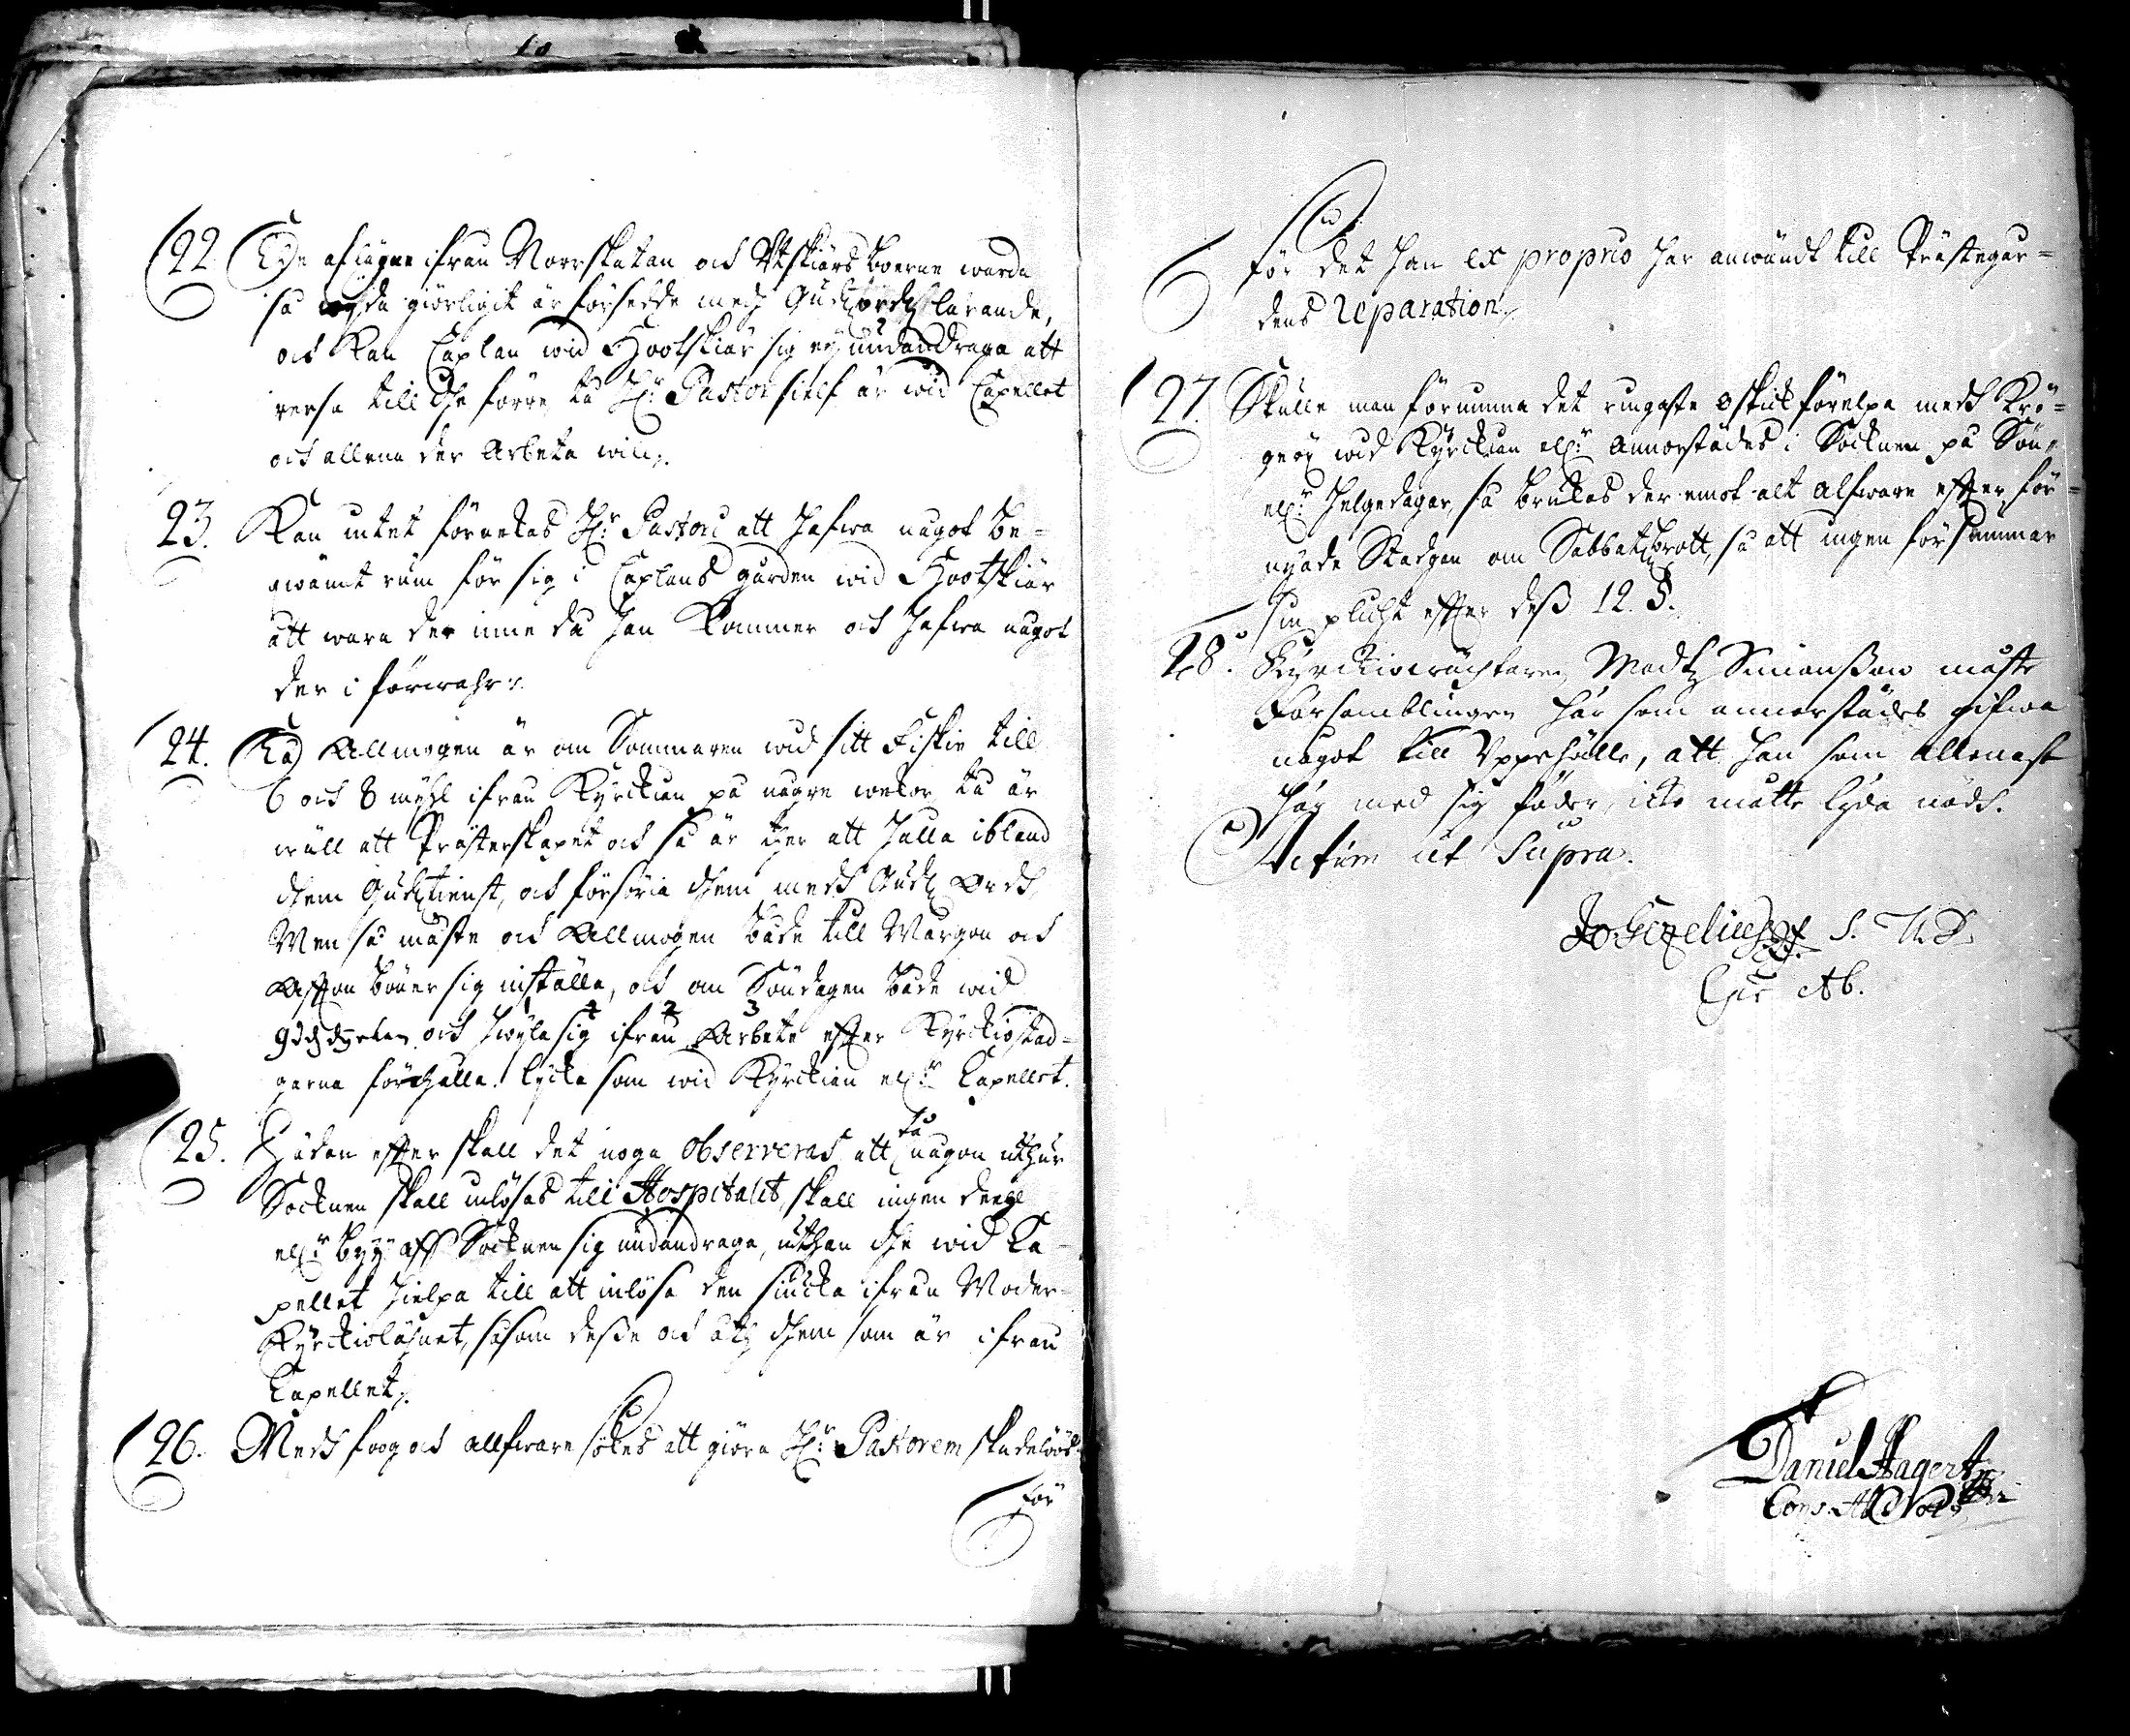 22. The aflägne ifrån Norrskatan och Utskiärs boerne warda
så ofta giörligit är försedde medh Gudz ordz larande,
och kan Caplan wid Hootskiär sig ey undandraga att
reesa till the förre tå H:r Pastor sielf är wid Capellet
och allena der Arbeta will.
23. Kan intet förnekas H:r Pastori att hafwa något be-
qwämt rum för sig i Caplans gården wid Hootskiär
att wara der inne då han kommer och hafwa något
der i förwahr.
24. Då Allmogen är om Sommaren wid sitt Fiskie till
6 och 8 myhl ifrån Kyrckian på några wekor tå är
wäll att Prästerskapet och så är ther att halla ibland
them Gudztienst, och försöria them medh Gudz Ordh
Men så måste och Allmogen både till Morgon och
Affton böner sig inställa, och om Söndagen både wid
och hwyla sig ifrån Arbete effter Kyrckiostad-
garna förehalla. lycka som wid Kyrckian ell:r Capellet.
tå
25. Hädan effter skall det noga observeras att någon uthur
Socknen skall inlösas till Hospitalet, skall ingen deehl
ell:r byy aff Socknen sig undandraga, uthan the wid Ca-
pellet hielpa till att inlösa den siucka ifrån Moder-
Kyrckiolähnet, såsom desse och them som är ifrån
Capellet.
26. Medh foog och allfware sökes att giöra H:r Pastorem skadelöös
För
för det han ex proprio har anwändt till Prästegår-
dens reparation.
27. Skulle man förnimma det ringaste oskick förelpa medh Krö-
gerij wid Kyrckian ell:r annorstädes i Socknen på Sön-
ell:r helgedagar, så brukas der emot alt alfware effter för-
nyade Stadgan om Sabbatzbrott, så att ingen försummar
sin plicht effter dess 12. §.
28. Kyrckiowächtaren Madtz Simonsson måste
Församblingen här som annorstädes gifwa
något till Uppehälle, att han som allenast
har med sig föder, icke måtte lyda nödh.
Actum ut Supra.
Jo. Gezelius S. Th. D.
Epis Ab.
Daniel Hagert
Cons. Ab. Not.